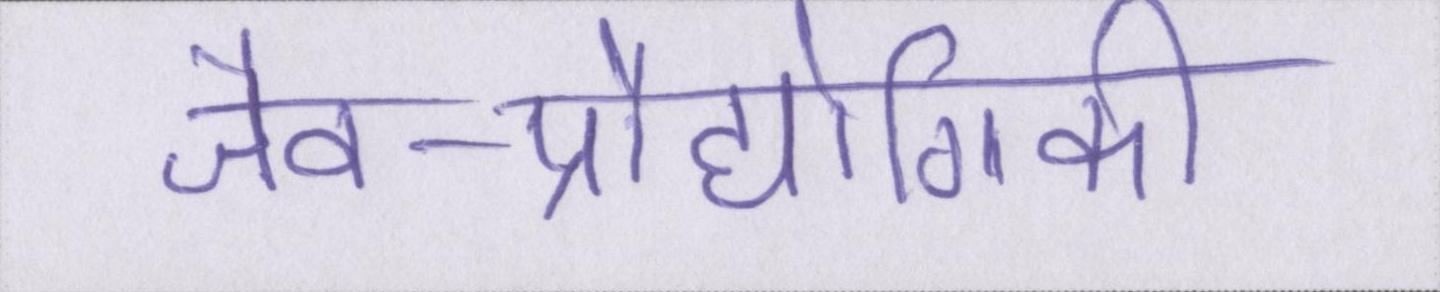 जैव-प्रौद्योगिकी